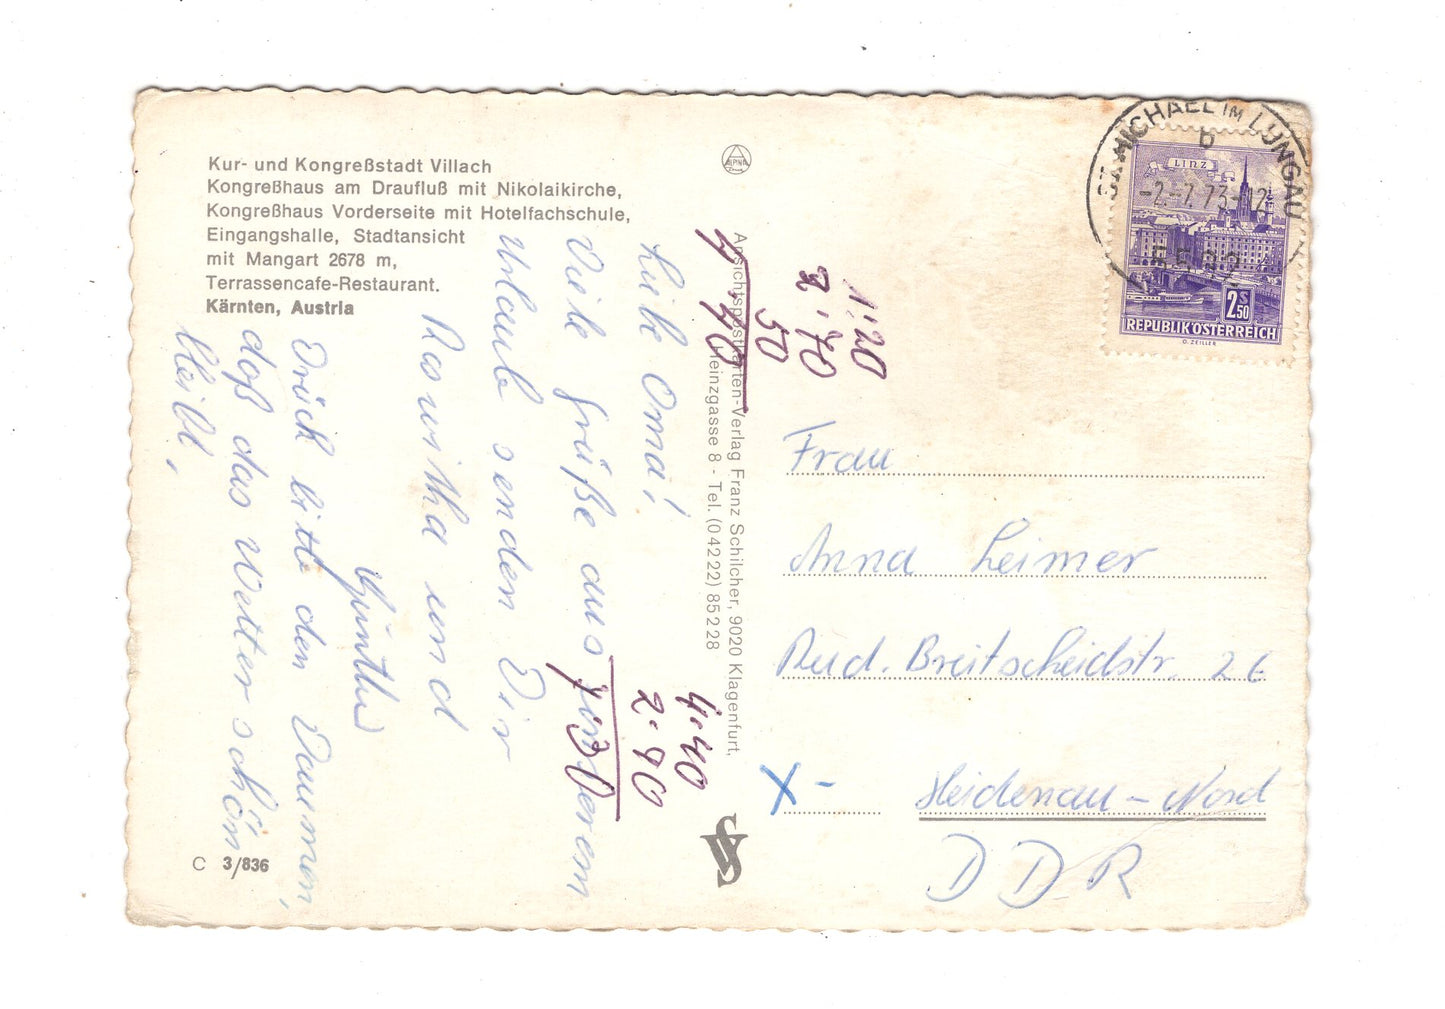 Kur- und Kongreßstadt Villach
Kongreßhaus am Draufluß mit Nikolaikirche,
Kongreßhaus Vorderseite mit Hotelfachschule,
Eingangshalle, Stadtansicht
mit Mangart 2678 m,
Terrassencafe-Restaurant.
Kärnten, Austria
Liebe Oma!
Viele Grüße aus unserem
Urlaub senden Dir
Roswitha und
Günther
Drück bitte den Daumen,
daß das Wetter schön
bleibt.
C 3/836
ALPINA
Ansichtspostkarten-Verlag Franz Schilcher, 9020 Klagenfurt,
Heinzgasse 8 - Tel. (0 42 22) 8 52 28
1·20
2·70
50
4·40
4·40
2·90
ST. MICHAEL IM LUNGAU
b
-2.-7.73-12
5582
LINZ
2 S 50
REPUBLIK ÖSTERREICH
O. ZEILLER
Frau
Anna Leimer
Rud. Breitscheidstr.
X-
Heidenau-Nord
DDR